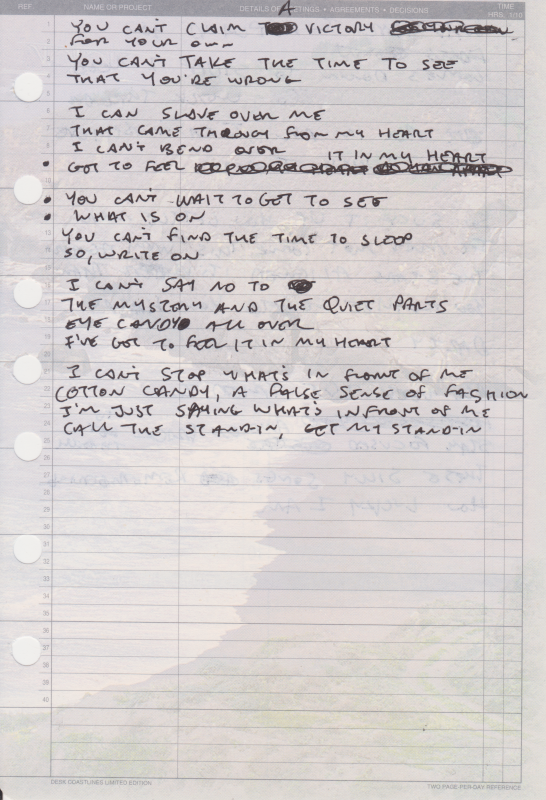 REF. NAME OR PROJECT DETAILS OF MEETINGS • AGREEMENTS • DECISIONS TIME HRS. 1/10
A
YOU CAN'T CLAIM VICTORY
FOR YOUR OWN
YOU CAN'T TAKE THE TIME TO SEE
THAT YOU'RE WRONG
I CAN SLAVE OVER ME
THAT CAME THROUGH FROM MY HEART
I CAN'T BEND OVER IT IN MY HEART
• GOT TO FEEL
• YOU CAN'T WAIT TO GET TO SEE
• WHAT IS ON
YOU CAN'T FIND THE TIME TO SLEEP
SO, WRITE ON
I CAN'T SAY NO TO
THE MYSTERY AND THE QUIET PARTS
EYE CANDY ALL OVER
I'VE GOT TO FEEL IT IN MY HEART
I CAN'T STOP WHAT'S IN FRONT OF ME
COTTON CANDY, A FALSE SENSE OF FASHION
I'M JUST SAYING WHAT'S IN FRONT OF ME
CALL THE STAND-IN, GET MY STAND-IN
DESK COASTLINES LIMITED EDITION
TWO PAGE PER-DAY REFERENCE